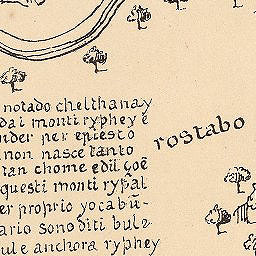 notado chelthanay
dai monti ryphey e
nder per questo
non nasce tanto
tan chome edil çoē
questi monti ryfāl
er proprio yocabū-
ario sono diti bul2
ul e anchora ryphey
rostabo